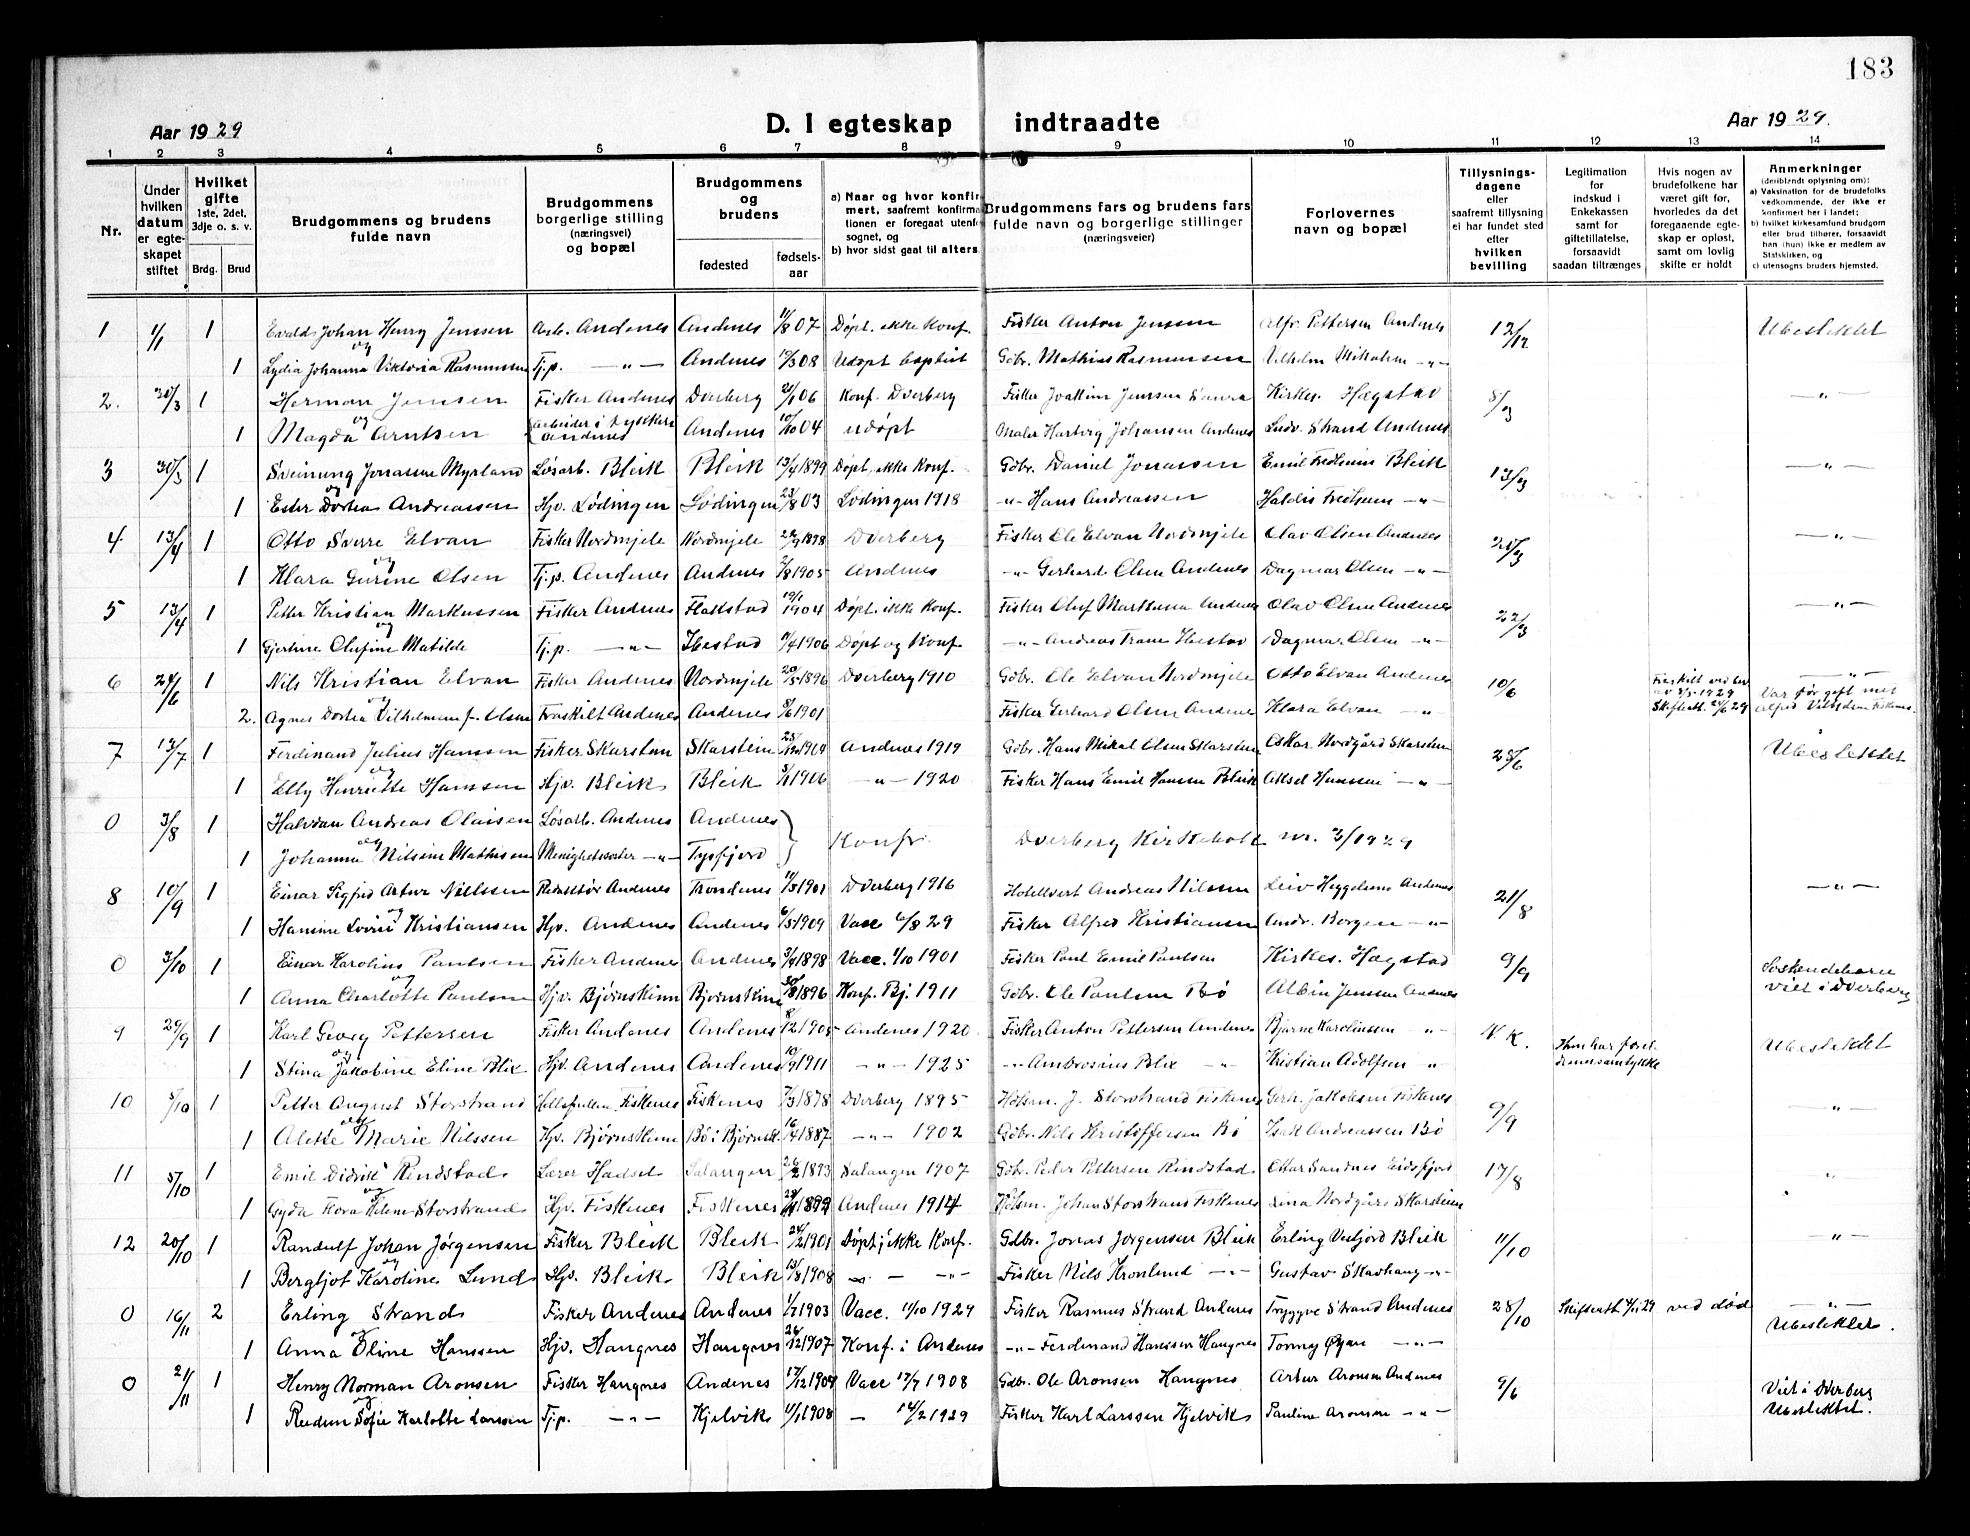 183
Aar 1929
D. I egteskap indtraadte
Aar 1929.
1 2 3 4 5 6 7 8 9 10 11 12 13 14
Nr.
Under hvilken datum er egteskapet stiftet
Hvilket gifte 1ste, 2det, 3dje o. s. v.
Brdg. Brud
Brudgommens og brudens fulde navn
Brudgommens borgerlige stilling (næringsvei) og bopæl
Brudgommens og brudens
fødested
fødselsaar
a) Naar og hvor konfirmert, saafremt konfirmationen er foregaat utenfor sognet, og
b) hvor sidst gaat til alters.
Brudgommens fars og brudens fars fulde navn og borgerlige stillinger (næringsveier)
Forlovernes navn og bopæl
Tillysningsdagene eller saafremt tillysning ei har fundet sted efter hvilken bevilling
Legitimation for indskud i Enkekassen samt for giftetillatelse, forsaavidt saadan tiltrænges
Hvis nogen av brudefolkene har været gift før, hvorledes da det foregaaende egteskap er opløst, samt om lovlig skifte er holdt
Anmerkninger (deriblendt oplysning om):
a) Vaksination for de brudefolks vedkommende, der ikke er konfirmert her i landet;
b) hvilket kirkesamfund brudgom eller brud tilhører, forsaavidt han (hun) ikke er medlem av Statskirken, og
c) utensogns bruders hjemsted.
1 1/1 1 Evald Johan Henry Jenssen Arb. Andenes Andenes 11/8 07 Døpt. ikke Konf. Fisker Anton Jenssen Alfr. Pettersen Andenes 12/12 Ubeslektet
og
1 Lydia Johanna Viktoria Rasmussen Tj.p. —"— Andenes 17/3 08 Udøpt baptist Gbr. Mathias Rasmussen Vilhelm Mikalsen —"—
2. 30/3 1 Herman Jensen Fisker Andenes Dverberg 21/1 06 Konf. Dverberg Fisker Joakim Jenssen Kirkes. Hægstad 8/3 —"—
og
1 Magda Arntsen Arbeider i Andenes Andenes 10/10 04 udøpt Maler Hartvig Johansen Andenes Ludv. Strand Andenes
3 30/3 1 Sveinung Jonassen Myrland Løsarb. Bleik Bleik 13/4 1899 Døpt, ikke Konf. Gbr. Daniel Jonassen Emil Fredheim Bleik 13/3 —"—
og
1 Ester Dortea Andreassen Hjv. Lødingen Lødingen 23/8 03 Lødingen 1918 "— Hans Andreassen Haldis Fredheim —"—
4 13/4 1 Otto Sverre Elvan Fisker Nordmjele Nordmjele 22/9 1898 Dverberg Fisker Ole Elvan Nordmjele Olav Olsen Andenes 20/3 —"—
og
1 Klara Gurine Olsen Tj.p. Andenes Andenes 2/8 1905 Andenes —"— Gerhard Olsen Andenes Dagmar Olsen —"—
5 13/4 1 Petter Kristian Markussen Fisker Andenes Flakstad 19/1 1904 Døpt. ikke Konf. Fisker Oluf Markussen Andenes Olav Olsen Andenes 22/3 —"—
og
1 Gjertine Olufine Matilde Tj.p. —"— Ibestad 11/4 1906 Døpt og Konf. —"— Andreas Trane Ibestad Dagmar Olsen —"—
6 24/6 1 Nils Kristian Elvan Fisker Andenes Nordmjele 20/5 1896 Dverberg 1910 Gbr. Ole Elvan Nordmjele Otto Elvan Andenes 10/6 Fraskilt ved bev. av 3/5 1929 —"—
og
2. Agnes Dortea Vilhelmsen f. Olsen Fraskilt Andenes Andenes 5/6 1901 Fisker Gerhard Olsen Andenes Klara Elvan —"— Skifteatt. 24/6 29 Var før gift med Alfred Vilhelmsen Fiskenes.
7 13/7 1 Ferdinand Julius Hanssen Fisker Skarstein Skarstein 25/12 1904 Andenes 1919 Gbr. Hans Mikal Olsen Skarstein Oskar Nordgård Skarstein 25/6 Ubeslektet
og
1 Elly Henriette Hanssen Hjv. Bleik Bleik 5/1 1906 —"— 1920 Fisker Hans Emil Hanssen Bleik Aksel Hanssen —"—
0 3/8 1 Halvdan Andreas Olaisen Løsarb. Andenes Andenes Konfr. Dverberg Kirkebok nr. 3/1929
og
1 Johanna Nilsine Mathisen Menighetssøster —"— Tysfjord
8 10/9 1 Einar Sigfred Artur Nilssen Redaktør Andenes Trondenes 11/5 1901 Dverberg 1916 Hotellvert Andreas Nilssen Leiv Heggelund Andenes 21/8 —"—
og
1 Hansine Lovise Kristiansen Hjv. Andenes Andenes 6/5 1909 Vacc 6/8 29 Fisker Alfred Kristiansen Andr. Borgen —"—
0 3/10 1 Einar Karolius Paulsen Fisker Andenes Andenes 3/4 1898 Vacc. 1/10 1901 Fisker Paul Emil Paulsen Kirkes. Hægstad 9/9 Søskendebarn
og
1 Anna Charlotte Paulsen Hjv. Bjørnskinn Bjørnskinn 30/8 1896 Konf. Bj. 1911 Gbr. Ole Paulsen Bø Albin Jenssen Andenes viet i Dverberg
9 29/9 1 Karl Georg Pettersen Fisker Andenes Andenes 8/12 1905 Andenes 1920 Fisker Anton Pettersen Andenes Bjarne Karolinssen —"— N.K. Hun har foreldrenes samtykke Ubeslektet
og
1 Stina Jakobine Eline Blix Hjv. Andenes Andenes 10/9 1911 —"— 1925 —"— Ambrosius Blix —"— Kristian Adolfsen —"—
10 5/10 1 Petter August Storstrand Fiskenes Fiskenes 7/3 1878 Dverberg 1895 Husm. J. Storstrand Fiskenes Gerh. Jakobsen Fiskenes 9/9 —"—
og
1 Alette Marie Nilssen Hjv. Bjørnskinn Bø i Bjørnsk. 16/4 1887 —"— 1902 Gbr. Nils Kristoffersen Bø Isak Andreassen Bø
11 5/10 1 Emil Didrik Rindstad Lærer Hadsel Salangen 26/2 1893 Salangen 1907 Gbr. Peter Pettersen Rindstad Ottar Sandnes Eidsfjord 17/8 "
og
1 Gyda Flora Helene Storstrand Hjv. Fiskenes Fiskenes 1899 Andenes 1914 Husm. Johan Storstrand Fiskenes Lina Nordgård Skarstein
12 20/10 1 Randulf Johan Jørgensen Fisker Bleik Bleik 24/2 1901 Døpt, ikke Konf. Gdbr. Jonas Jørgensen Bleik Erling Vestfjord Bleik 11/10 —"—
og
1 Bergljot Karoline Lund Hjv. Bleik Bleik 13/8 1908 —"— —"— Fisker Nils Kronlund —"— Gustav Skavhaug —"—
0 16/11 2 Erling Strand Fisker Andenes Andenes 1/7 1903 Vacc. 11/10 1929 Fisker Rasmus Strand Andenes Tryggve Strand Andenes 28/10 Skifteatt 4/11 29 ved død —"— Ubeslektet.
og
1 Anna Oline Hanssen Hjv. Haugnes Haugnes 26/12 1907 Konf. i Andenes —"— Ferdinand Hanssen Haugnes Tonny Øyan —"—
0 21/11 1 Henry Norman Aronsen Fisker Haugnes Andenes 17/12 1904 Vacc 17/7 1908 Gdbr. Ole Aronsen Haugnes Artur Aronsen Andenes 9/6 Viet i Dverberg
og
1 Reidun Sofie Karlotte Larssen Tj.p. —"— Kjelvik 4/1 1908 — 14/2 1929 Fisker Karl Larssen Kjelvik Pauline Aronsen —"— Ubeslektet.